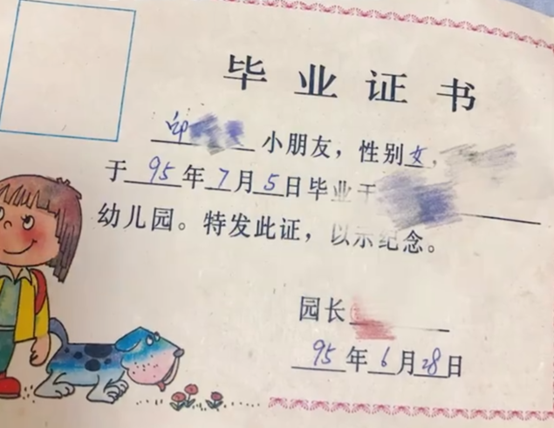 毕业证书
印 小朋友，性别女，
于95年7月5日毕业于
幼儿园。特发此证，以示纪念。
园长
95年6月28日